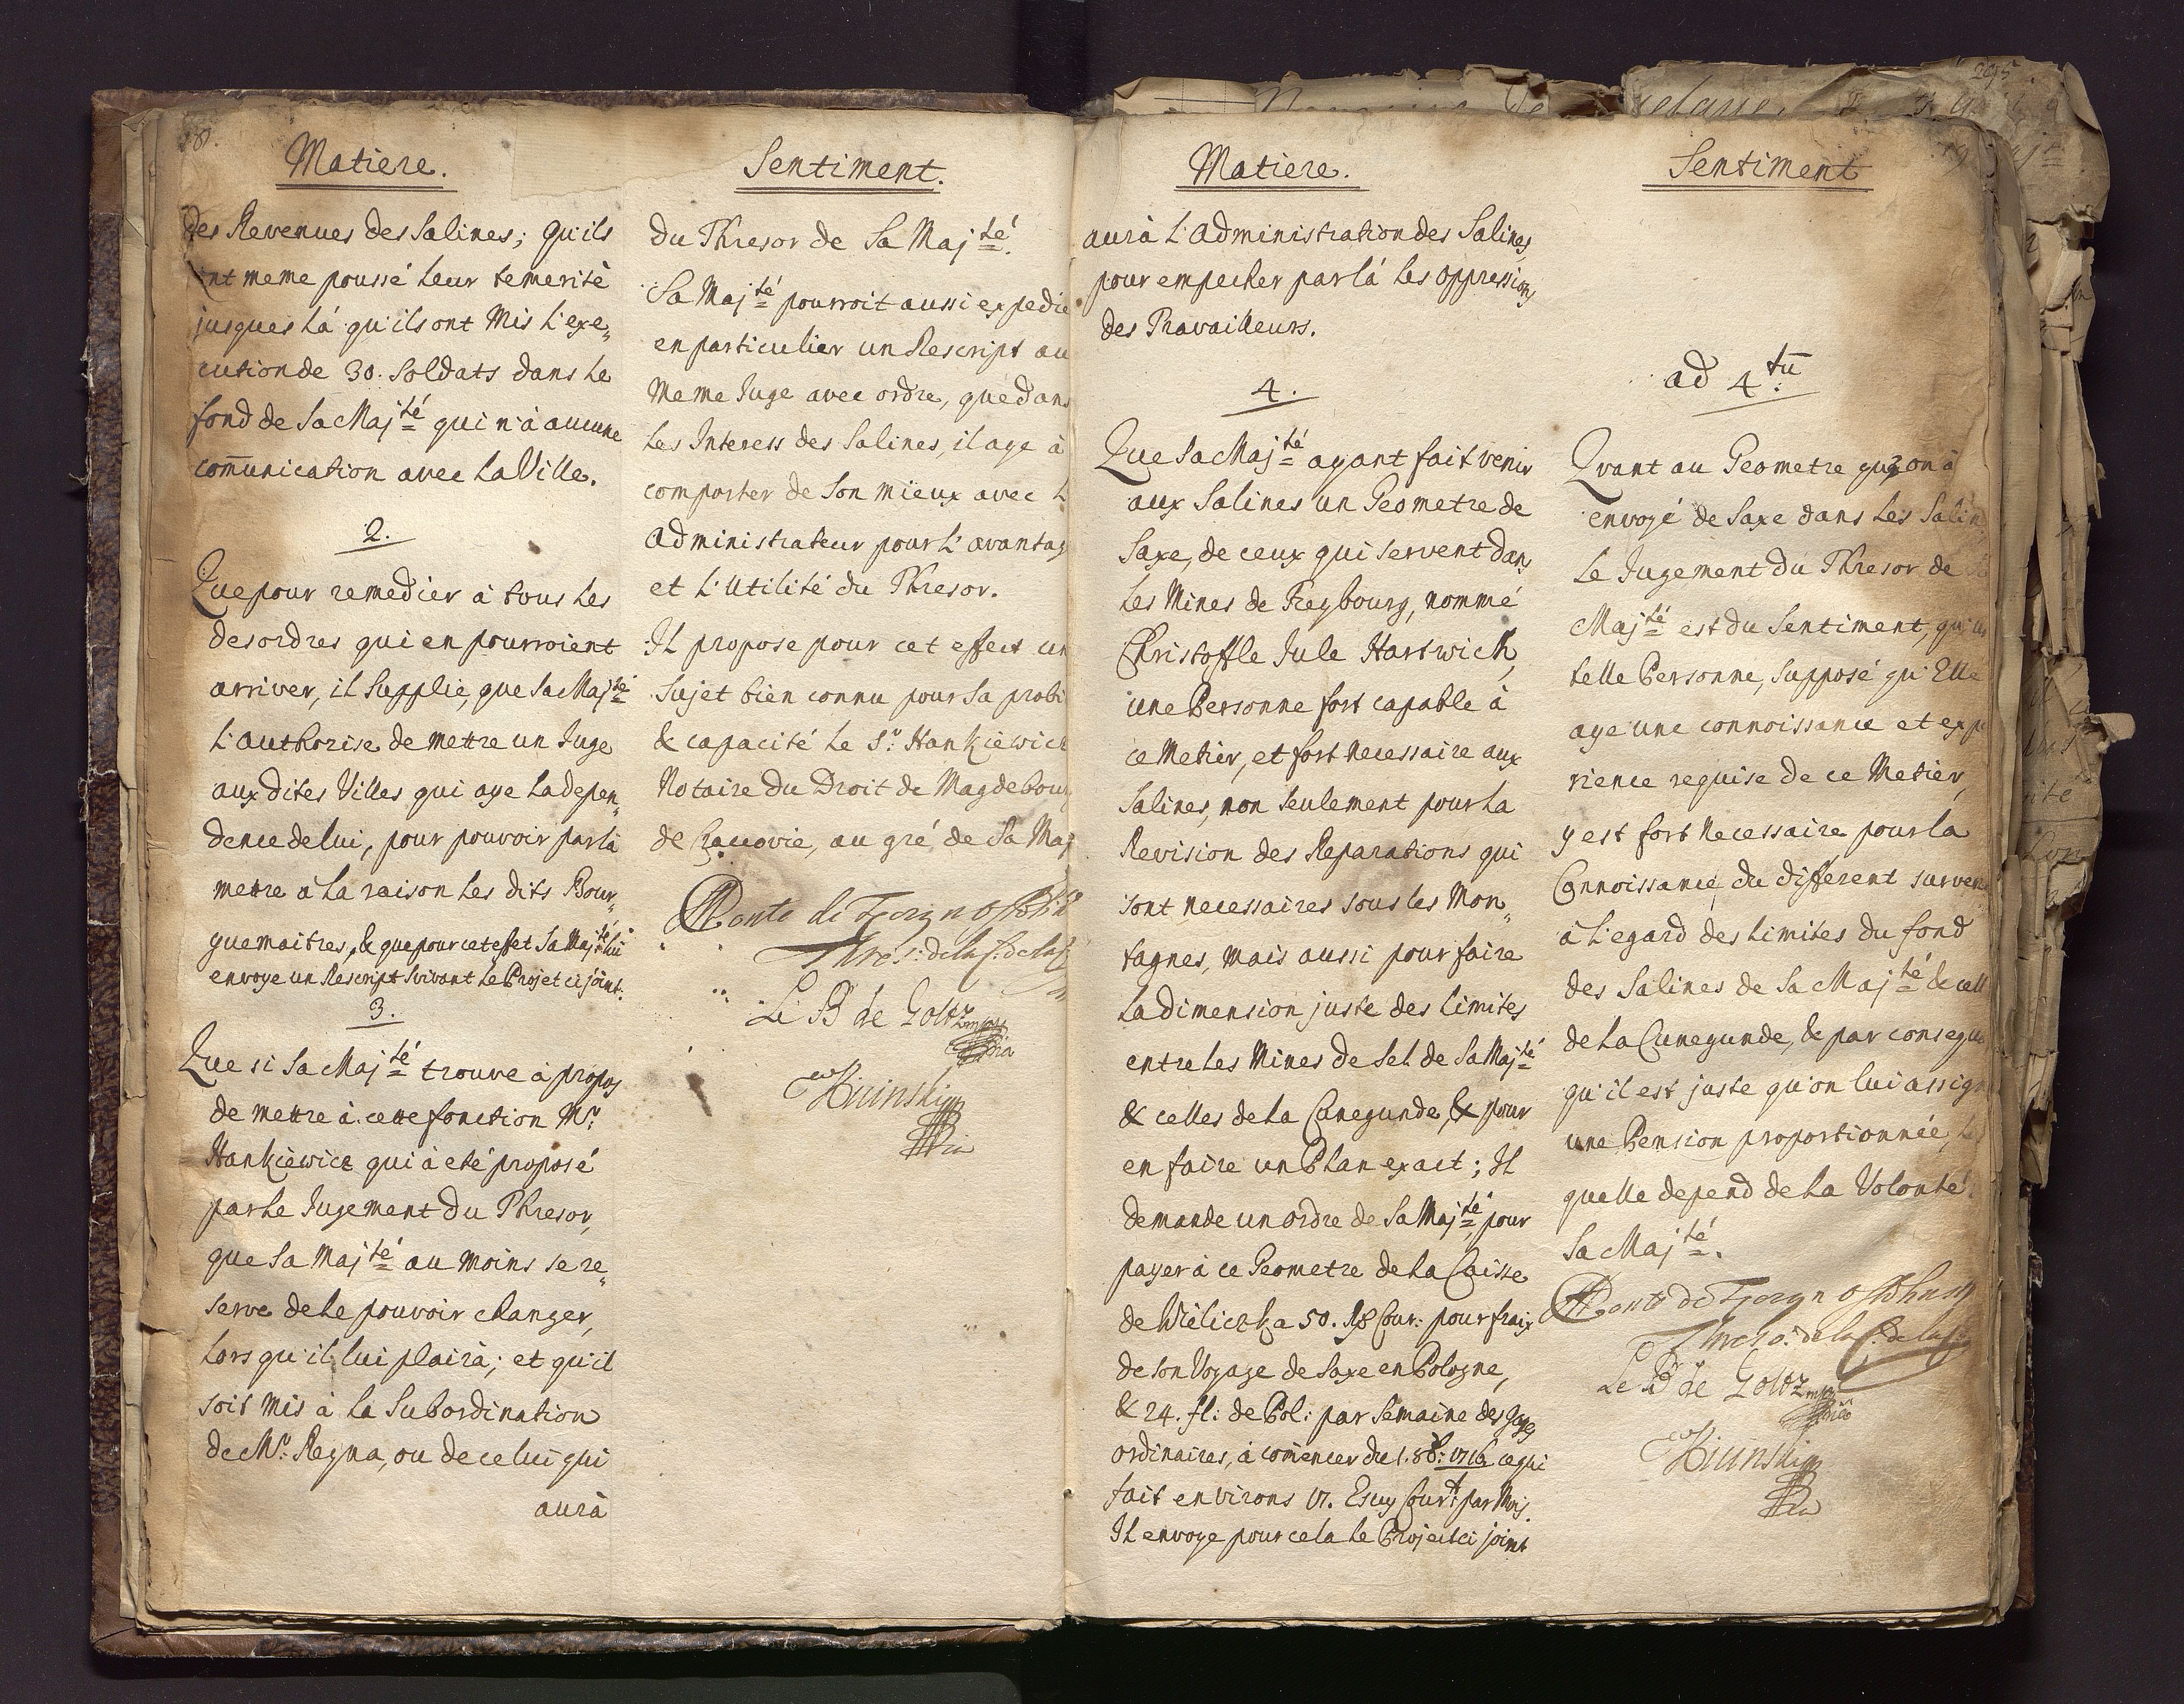 Matiere.
des Revenues des Salines; qu'ils
ont meme poussé leur temerité
jusques là qu'ils ont mis l'exe„
cution de 30. Soldats dans le
fond de Sa Majté qui n'à aucune
com̄unication avec la Ville.
2.
Que pour remedier à tous les
desordres qui en pourroient
arriver, il supplie, que Sa Majté
l'authorise de mettre un Juge
aux dites Villes qui aye la depen„
dence de lui, pour pouvoir par là
mettre à la raison les dits Bour„
guemaitres, & que pour cet effet Sa Majté lui
envoye un Rescript suivant le Projet ci joint.
3.
Que si Sa Majté trouve à propos
de mettre à cette fonction Mr.
Hankiewicz qui à eté proposé
par le Jugement du Thresor,
que Sa Majté au moins se re„
serve de le pouvoir changer,
lors qu'il lui plairà; et qu'il
soit mis à la Subordination
de Mr. Regna, ou de celui qui
aurà
Sentiment.
du Thresor de Sa Majté.
Sa Majté pourroit aussi expedie
en particulier un Rescript au
meme Juge avec ordre, que dans
les Interess des Salines, il aye à
comporter de son mieux avec l
administrateur pour l'avantag
et l'Utilité du Thresor.
Il propose pour cet effect un
Sujet bien connu pour sa probi
& capacité le Sr. Hankiewicz
Notaire du Droit de Magdebourg
de Cracovie, au gré de Sa Maj
Conte de
Thres: de la C: de la
Le B de Goltz mpp
Matiere.
aurà l'administration des Salines,
pour empecher par là les oppressions
des Travailleurs.
4.
Que Sa Majté ayant fait venir
aux Salines un Geometre de
Saxe, de ceux qui servent dans
les Mines de Freybourg, nommé
Christoffle Jule Hartwich,
une Personne fort capable à
ce Metier, et fort necessaire aux
Salines, non seulement pour la
Revision des Reparations qui
sont necessaires sous les Mon„
tagnes, mais aussi pour faire
la dimension juste des limites
entre les Mines de Sel de Sa Majté
& celles de la Cunegunde, & pour
en faire un Plan exact; Il
demande un ordre de Sa Majté, pour
payer à ce Geometre de la Caisse
de Wieliczka 50. Rx Cour: pour fraix
de son Voyage de Saxe en Pologne,
& 24. fl: de Pol: par Semaine des gages
ordinaires, à com̄encer du 1. 8b: 1716. ce qui
fait environs 17. Escuy Court. par Mois.
Il envoye pour cela le Project ci joint
Sentiment
ad 4tū
Quant au Geometre qu'on à
envoyé de Saxe dans les Salin
le Jugement du Thresor de
Majté est du Sentiment, qu'un
telle Personne, supposé qu'Elle
aye une connoissance et expe
rience requise de ce Metier,
y est fort necessaire pour la
Connoissance du different surven
à l'egard des limites du fond
des Salines de Sa Majté & cell
de la Cunegunde, & par consequ
qu'il est juste qu'on lui assign
une Pension proportionnée, la
quelle depend de la Volonté
Sa Majté.
Conte de
Thres: de la C: de la
Le B de Goltz mpp
295